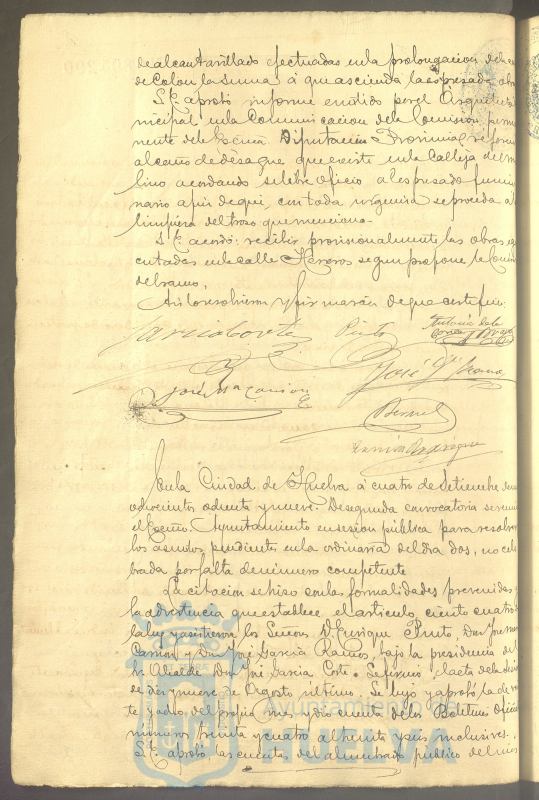 de alcantarillado efectuadas en la prolongacion de la
de Colon la suma á que ascienda la espresada obra
S.E. aprobó informe emitido por el Arquitecto
nicipal en la Comunicacion de la Comision perma
nente de la Escma. Diputacion Provincial referen
al caño de desague que existe en la Calleja del mo
lino acordando se libre oficio al espresado funcio
nario á fin de que, con toda urgencia se proceda á
limpieza del trozo que menciona.
S.E. acordó recibir provisionalmente las obras eje
cutadas en la calle Herreros segun propone la Comi
del ramo.
Asi lo resolvieron y firmarán de que certifico:
Garcia Corte
Pinto
Antonio de la
José Gª Ramos
José M Carrion
Bernal
En la Ciudad de Huelva á cuatro de Setiembre de mil
ochocientos ochenta y nueve. De segunda convocatoria se reunio
el Escmo. Ayuntamiento en sesion pública para resolver
los asuntos pendientes en la ordinaria del dia dos, no cele
brada por falta de número competente.
La citacion se hizo con las formalidades prevenidas y
la advertencia que establece el articulo ciento cuatro de
la ley y asistieron los Señores D. Enrique Pinto, Don José
Carrion y Don José Garcia Ramos, bajo la presidencia del
Sr. Alcalde Don José Garcia Corte. Se firmó el acta de la
de diez y nueve de Agosto último. Se leyó y aprobó la de
te y ocho del propio mes y dio cuenta de los Boletines Oficia
números treinta y cuatro al treinta y seis inclusives.
S.E. aprobó las cuentas del alumbrado público del mes
Ayuntamiento de
HUELVA